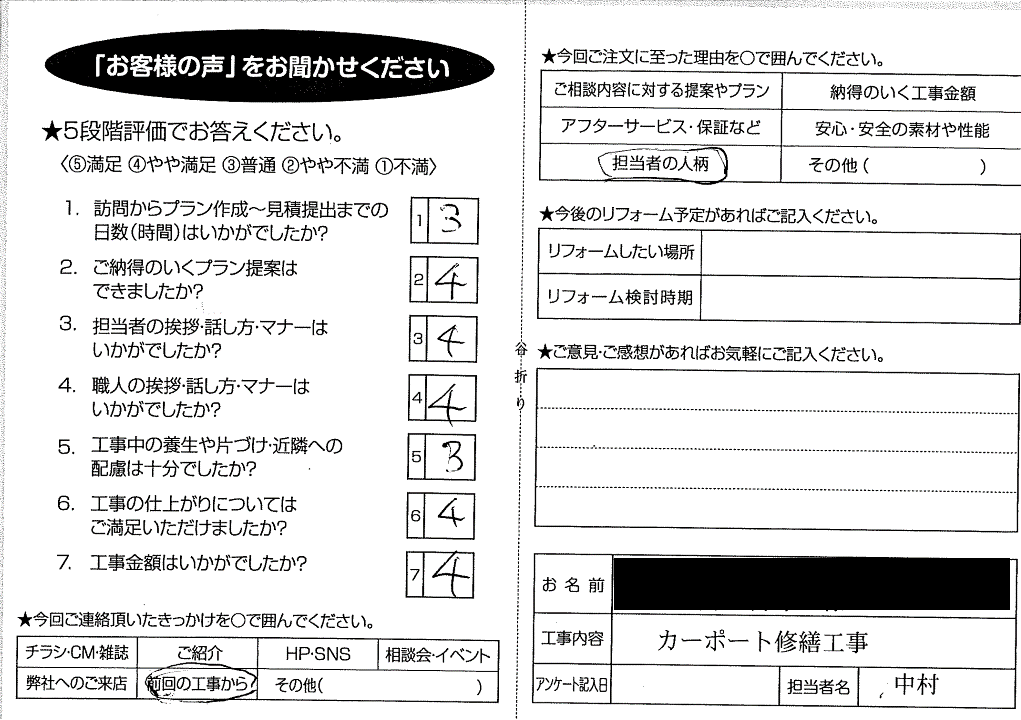 「お客様の声」をお聞かせください
★5段階評価でお答えください。
〈⑤満足 ④やや満足 ③普通 ②やや不満 ①不満〉
1. 訪問からプラン作成～見積提出までの
日数(時間)はいかがでしたか?
1 3
2. ご納得のいくプラン提案は
できましたか?
2 4
3. 担当者の挨拶・話し方・マナーは
いかがでしたか?
3 4
4. 職人の挨拶・話し方・マナーは
いかがでしたか?
4 4
5. 工事中の養生や片づけ・近隣への
配慮は十分でしたか?
5 3
6. 工事の仕上がりについては
ご満足いただけましたか?
6 4
7. 工事金額はいかがでしたか?
7 4
★今回ご連絡頂いたきっかけを○で囲んでください。
チラシ・CM・雑誌 ご紹介 HP・SNS 相談会・イベント
弊社へのご来店 前回の工事から その他( )
谷折り
★今回ご注文に至った理由を○で囲んでください。
ご相談内容に対する提案やプラン 納得のいく工事金額
アフターサービス・保証など 安心・安全の素材や性能
担当者の人柄 その他( )
★今後のリフォーム予定があればご記入ください。
リフォームしたい場所
リフォーム検討時期
★ご意見・ご感想があればお気軽にご記入ください。
お名前
工事内容 カーポート修繕工事
アンケート記入日 担当者名 中村